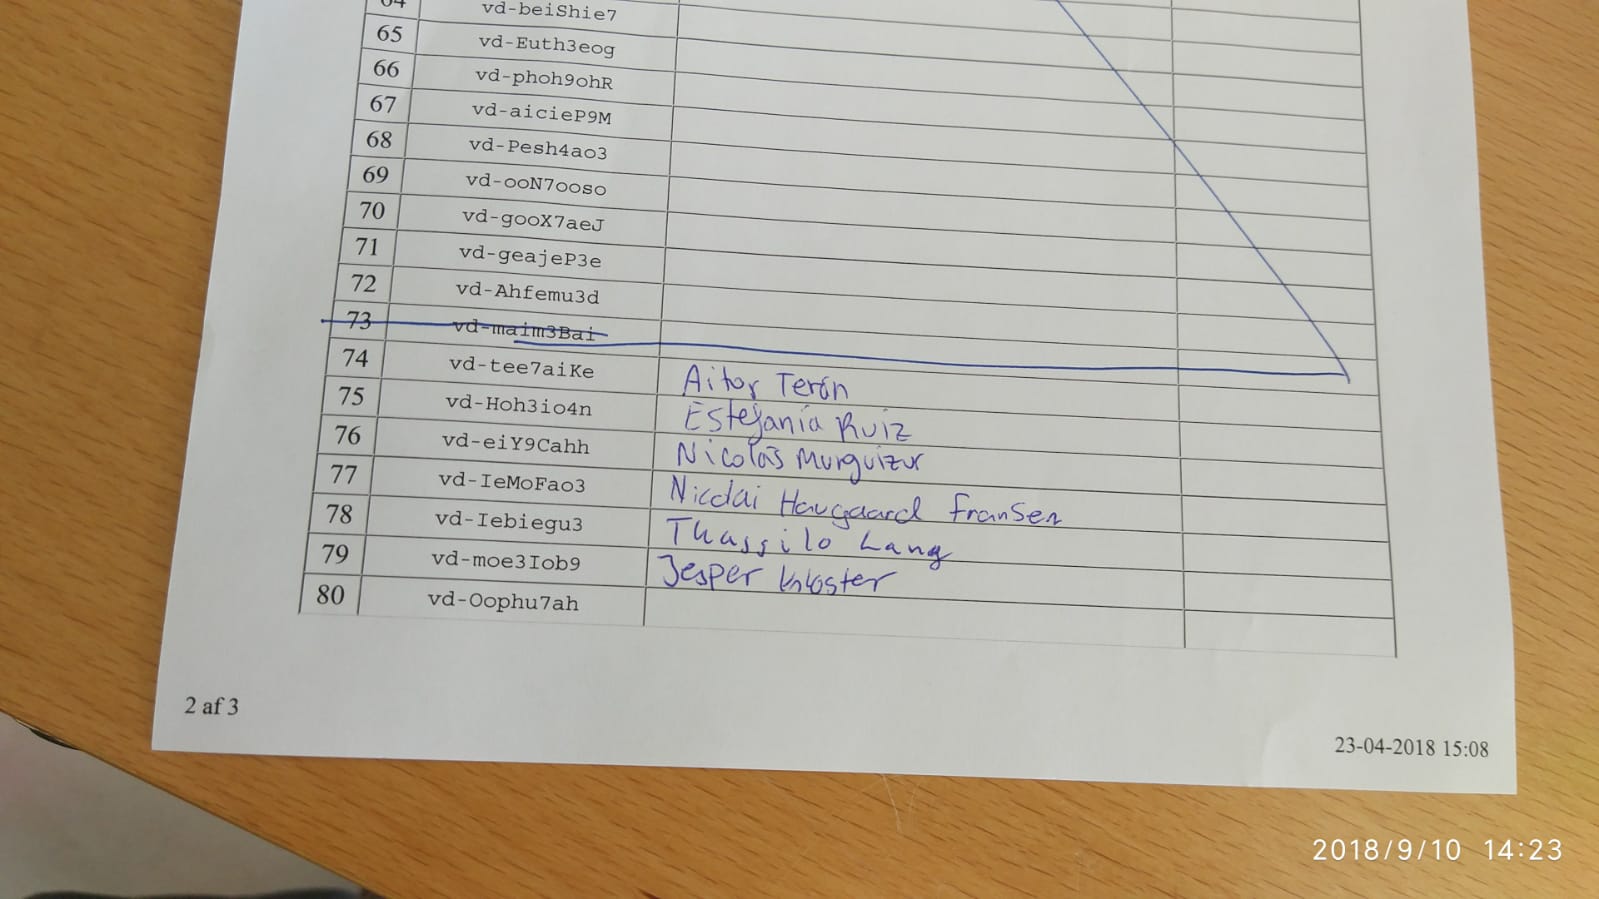 64 vd-beiShie7
65 vd-Euth3eog
66 vd-phoh9ohR
67 vd-aicieP9M
68 vd-Pesh4ao3
69 vd-ooN7ooso
70 vd-gooX7aeJ
71 vd-geajeP3e
72 vd-Ahfemu3d
73 vd-maim3Bai
74 vd-tee7aiKe Aitor Terón
75 vd-Hoh3io4n Estefanía Ruiz
76 vd-eiY9Cahh Nicolás Murguizur
77 vd-IeMoFao3 Nicolai Haugaard Fransen
78 vd-Iebiegu3 Thassilo Lang
79 vd-moe3Iob9 Jesper
80 vd-Oophu7ah
2 af 3
23-04-2018 15:08
2018/9/10 14:23